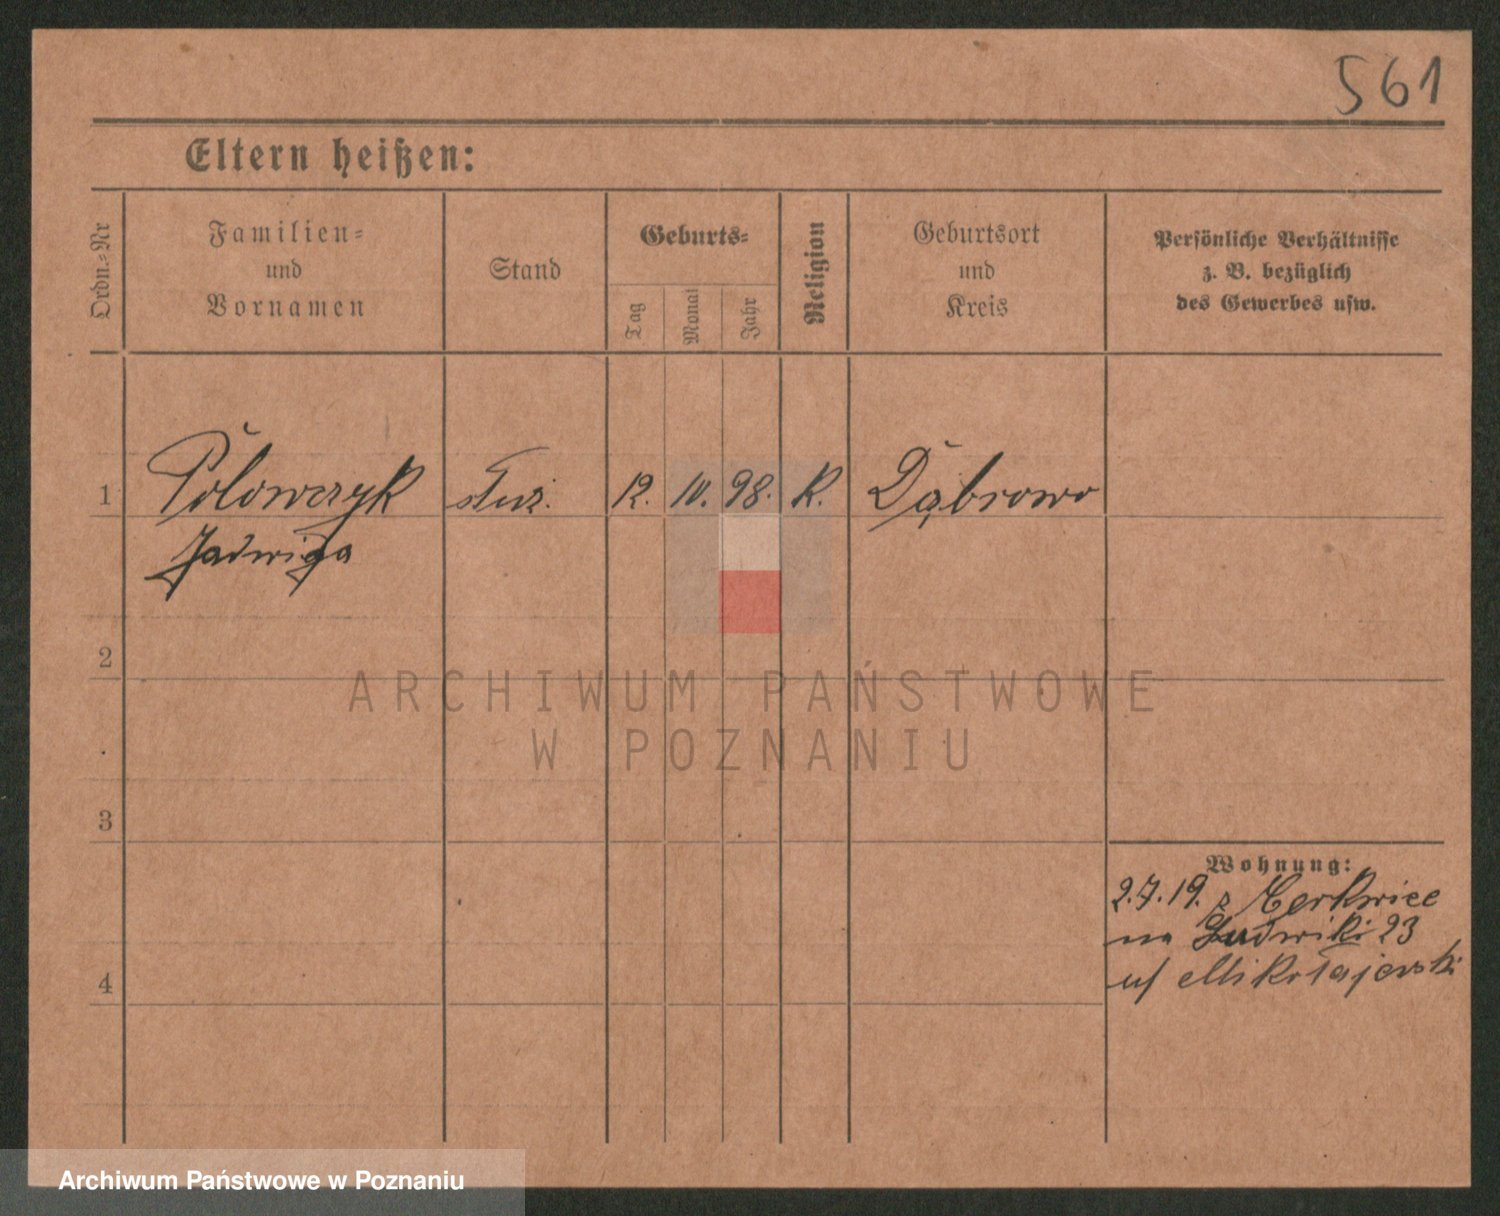 561
Eltern heißen:
Ordn.-Nr
Familien-
und
Vornamen
Stand
Geburts-
Tag
Monat
Jahr
Religion
Geburtsort
und
Kreis
Persönliche Verhältnisse
z. B. bezüglich
des Gewerbes usw.
1
Połowczyk
służ.
12.
10.
98.
K.
Dąbrowo
Jadwiga
2
ARCHIWUM PAŃSTWOWE
W POZNANIU
3
Wohnung:
2.7.19. z Cerkwice
na Ludwiki 23
u/ Mikołajewski
4
Archiwum Państwowe w Poznaniu